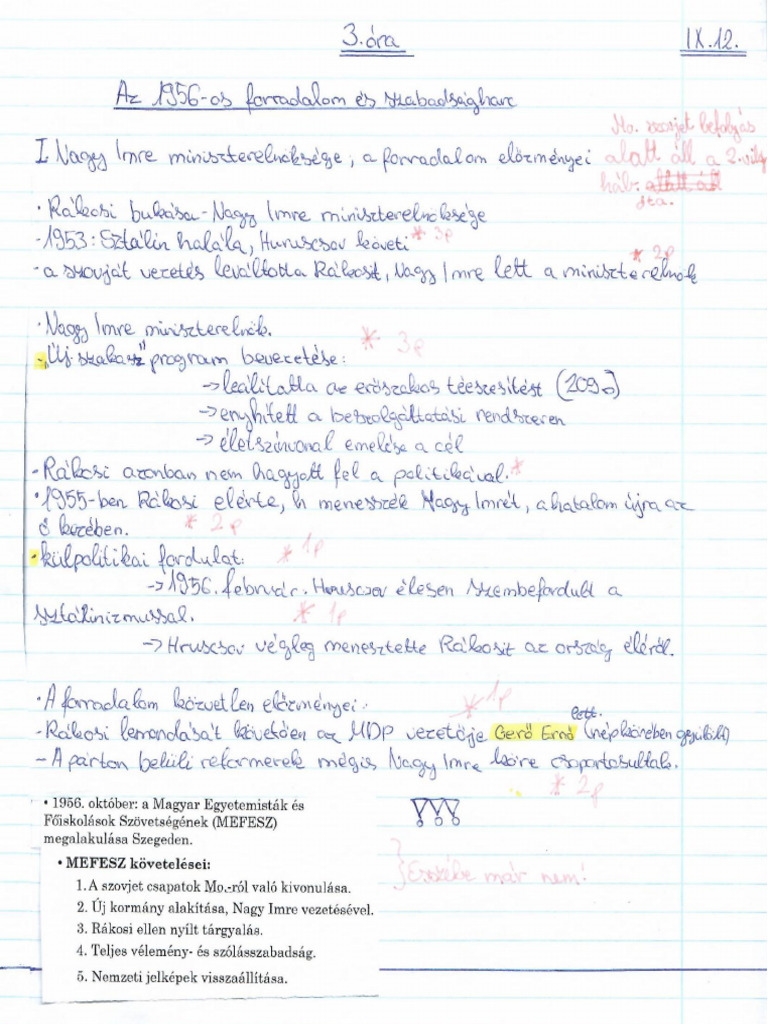 3. óra
IX.12.
Az 1956-os forradalom és szabadságharc
Mo. szovjet befolyás
I Nagy Imre miniszterelnöksége, a forradalom előzményei
alatt áll a 2. vilg
háb. alatt áll
óta.
• Rákosi bukása - Nagy Imre miniszterelnöksége
- 1953: Sztálin halála, Hruscsov követi * 3p
- a szovját vezetés leváltotta Rákosit, Nagy Imre lett a miniszterelnök * 2p
• Nagy Imre miniszterelnök.
- „Új szakasz" program bevezetése: * 3p
→ leállitatta az erőszakos téeszesítést (209.o)
→ enyhített a beszolgáltatási rendszeren
→ életszínvonal emelése a cél
- Rákosi azonban nem hagyott fel a politikával. *
• 1955-ben Rákosi elérte, h menesszék Nagy Imrét, a hatalom újra az
ő kezében. * 2p
• külpolitikai fordulat: * 1p
→ 1956. február. Hruscsov élesen szembefordult a
sztálinizmussal. * 1p
→ Hruscsov végleg menesztette Rákosit az ország éléről.
• A forradalom közvetlen előzményei: * 1p
lett.
- Rákosi lemondását követően az MDP vezetője Gerő Ernő (nép körében gyűlölt)
- A párton belüli reformerek mégis Nagy Imre köré csoportosultak.
* 2p
• 1956. október: a Magyar Egyetemisták és
Főiskolások Szövetségének (MEFESZ)
megalakulása Szegeden.
• MEFESZ követelései:
1. A szovjet csapatok Mo.-ról való kivonulása.
2. Új kormány alakítása, Nagy Imre vezetésével.
3. Rákosi ellen nyílt tárgyalás.
4. Teljes vélemény- és szólásszabadság.
5. Nemzeti jelképek visszaállítása.
már nem!